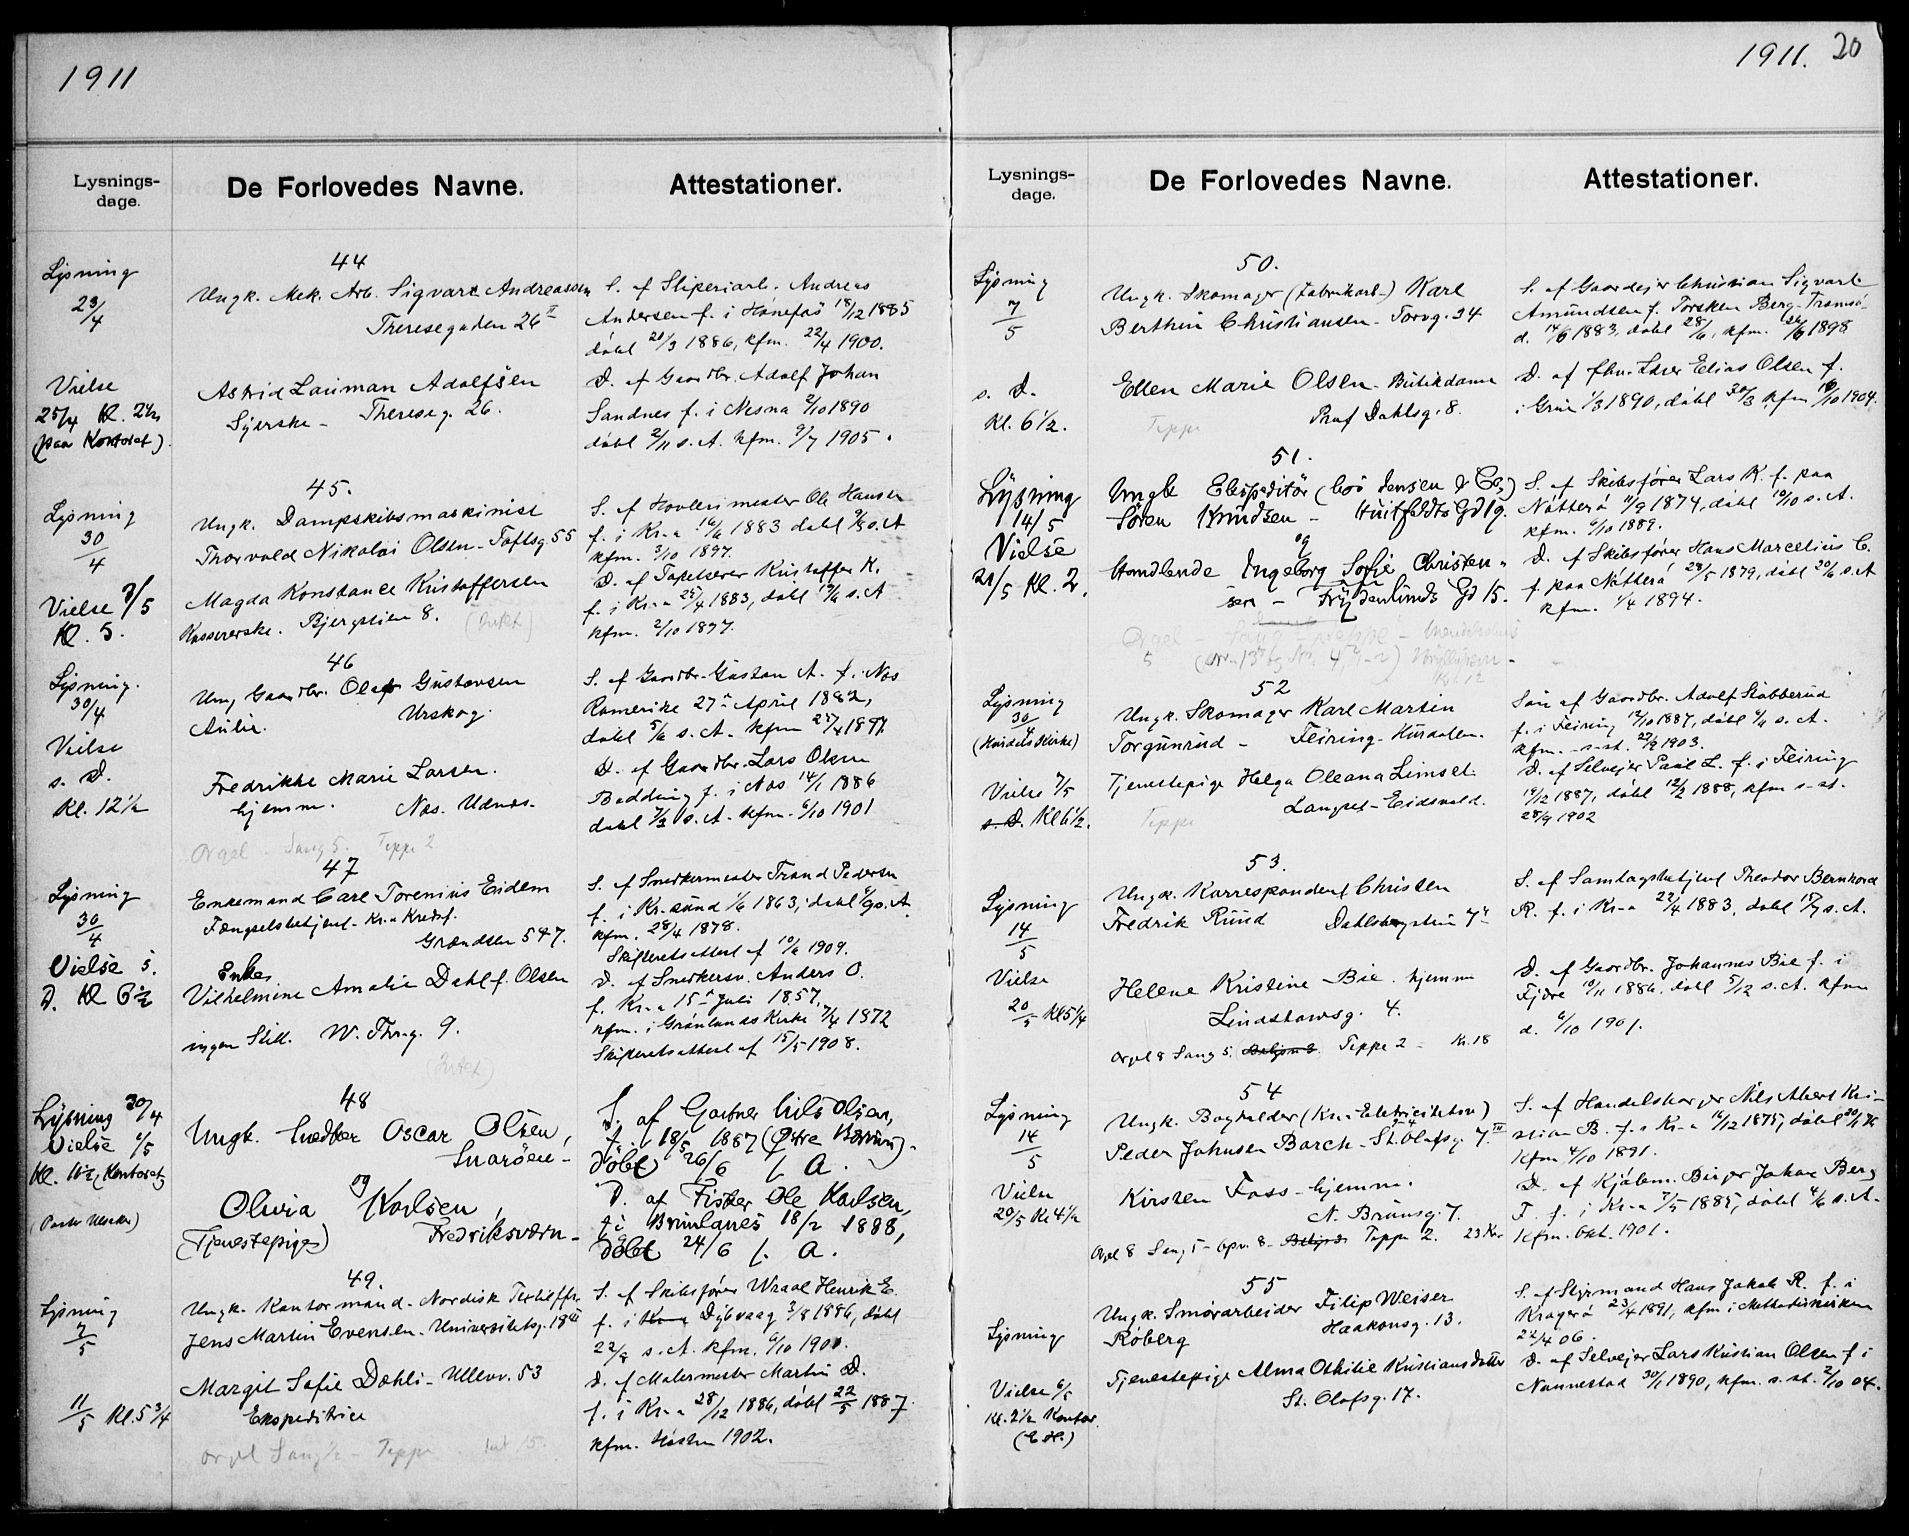 1911
Lysnings-
dage.
De Forlovedes Navne.
Attestationer.
Lysning
23/4
Vielse
25/4 Kl. 2½
(paa Kontoret).
44
Ungk. Mek. Arb. Sigvart Andreassen
Theresegaden 26 II
Astrid Lauman Adolfsen
Syerske - Thereseg. 26.
S. af Sliperiarb. Andreas
Andersen f. i Hønefos 18/12 1885
døbt 21/3 1886, kfm. 22/4 1900.
D. af Gaardbr. Adolf Johan
Sandnes f. i Nesna 2/10 1890
døbt 2/11 s. A. kfm. 9/7 1905.
Lysning
30/4
Vielse 3/5
Kl. 5.
45.
Ungk. Dampskibsmaskinist
Thorvald Nikolai Olsen - Toftsg. 55
Magda Konstance Kristoffersen
Kassererske. Bjergstien 8.
S. af Høvlerimester Ole Hansen
f. i Kr.a 16/6 1883 døbt 9/8 s. A
kfm. 3/10 1897.
D. af Tapetserer Kristoffer K.
f. i Kr.a 25/4 1883, døbt 17/6 s. A
kfm. 2/10 1897.
Lysning.
30/4
Vielse
s. D.
Kl. 12½
46
Ung. Gaardbr. Olaf Gustavsen
Aulie. Urskog.
Fredrikke Marie Larsen.
hjemme. Nes. Udnes.
Orgel - Sang 5. Teppe 2
S. af Gaardbr. Gustav A. f. i Nes
Romerike 27de April 1882,
døbt 5/6 s. A. kfm 25/4 1897.
D. af Gaardbr. Lars Olsen
Bødding f. i Nes 14/1 1886
døbt 7/3 s. A. kfm. 6/10 1901
Lysning
30/4
Vielse s.
D. Kl 6½
47
Enkemand Carl Torenius Eidem
Fængselsbetjent. Kr.a Kredsf.
Grændsen 5 & 7.
Enke
Vilhelmine Amalie Dahl f. Olsen
ingen Still. W. Thr.g. 9.
(Intet)
S. af Snedkermester Trond Pedersen
f. i Kr.sund 1/6 1863, døbt s. A.
kfm. 28/4 1878.
Skifteretsattest af 10/6 1909.
D. af Snedkersv. Anders O.
f. Kr.a 15de Juli 1857.
kfm. i Grønlands Kirke 7/4 1872
Skifteretsattest af 15/5 1908.
Lysning 30/4
Vielse 6/5
48
Ungk. Snedker Oscar Olsen,
Snarøen -
og
Olivia Karlsen,
(Tjenestepige) Fredriksværn -
S. af Gartner Nils Olsen,
f. 18/5 1887 (Østre Bærum).
døbt 26/6 s. A.
D. af Fisker Ole Karlsen,
f. i Brunlanes 18/2 1888,
døbt 24/6 s. A.
Lysning
7/5
11/5 Kl. 5¾
49.
Ungk. Kontormand - Nordisk
Jens Martin Evensen - Universitetsg. 18 III
Margit Sofie Dæhli - Ullevv. 53
Ekspeditrice
S. af Skibsfører Wraal Henrik E.
f. i Dybvaag 3/8 1886, døbt
22/8 s. A. kfm. 6/10 1900.
D. af Malermester Martin D.
f. i Kr.a 28/12 1886, døbt 22/5 1887.
kfm. Høsten 1902.
1911. 20
Lysnings-
dage.
De Forlovedes Navne.
Attestationer.
Lysning
7/5
s. D.
Kl. 6½.
50.
Ungk. Skomager (Fabrikarb.) Karl
Berthin Christiansen - Torvg. 34
Ellen Marie Olsen - Butikdame
Prof Dahlsg. 8.
Teppe
S. af Gaardejer Christian Sigvart
Amundsen f. Torsken Berg - Tromsø
d. 14/5 1883, døbt 28/6, kfm. 26/6 1898
D. af fhv. Lærer Elias Olsen f.
i Grue 1/3 1890, døbt 30/3, kfm. 16/10 1904.
Lysning
14/5
Vielse
21/5 Kl. 2.
51.
Ungk Ekspeditør (hos Jensen & Co,)
Søren Knudsen - Huitfeldts Gd 19.
og
Handlende Ingeborg Sofie Christen-
sen - Frydenlunds Gd 15.
S. af Skibsfører Lars K. f. paa
Nøtterø 11/9 1874, døbt 18/10 s. A.
kfm. 6/10 1889.
D. af Skibsfører Hans Marcelius C.
f. paa Nøtterø 28/5 1879, døbt 20/6 s. A
kfm. 1/4 1894.
Lysning
30/4
(Hurdals Kirke)
Vielse 7/5
s. D. Kl 6½.
52
Ungk. Skomager Karl Martin
Torgunrud - Feiring - Hurdalen.
Tjenestepige Helga Oleana Limset
Langset - Eidsvold.
Teppe
Søn af Gaardbr. Adolf Stabberud
f. i Feiring 12/10 1887, døbt s. A.
kfm. s. st. 27/9 1903.
D. af Selvejer Paul L. f. i Feiring
19/12 1887, døbt 12/2 1888, kfm s. st.
28/9 1902
Lysning
14/5
Vielse
20/5 Kl 5¼
53.
Ungk. Korrespondent Christen
Fredrik Ruud
Helene Kristine Bie. hjemme
Lindstowsg. 4.
Orgel 8 Sang 5. Teppe 2 - Kr. 18
S. af Samlagsbetjent Theodor Bernhard
R. f. i Kr.a 22/4 1883, døbt 15/7 s. A.
D. af Gaardbr. Johannes Bie f. i
Fjære 10/11 1886, døbt 5/12 s. A. kfm
d. 6/10 1901.
Lysning
14/5
Vielse
20/5 Kl 4½
54
Ungk. Bogholder (Kr.a Elektricitetsv.)
Peder Johnsen Borch - St. Olafsg. 7. IV
Kirsten Foss - hjemme.
N. Brunsg. 7.
Orgel 8 Sang 5 - Teppe 2. 23 Kr
S. af Handelsborger Nils Albert Kri-
stian B. f. i Kr.a 16/12 1875, døbt
Kfm 4/10 1891.
D. af Kjøbm. Birger Johan Berg
F. f. i Kr.a 7/5 1885, døbt 4/6 s. A.
Kfm. Okt. 1901.
Lysning
Vielse 6/5
Kl. 2½ Kontor
(E. H.)
55
Ungk. Smørarbeider Filip Weiser
Røberg Haakonsg. 13.
Tjenestepige Alma Othilie Kristiansdatter
St. Olafsg. 17.
S. af Styrmand Hans Jakob R. f. i
Kragerø 23/4 1891, kfm i Methodistkirken
22/4 06.
D. af Selvejer Lars Kristian Olsen f i
Nannestad 30/1 1890, kfm. s. st. 2/10 04.